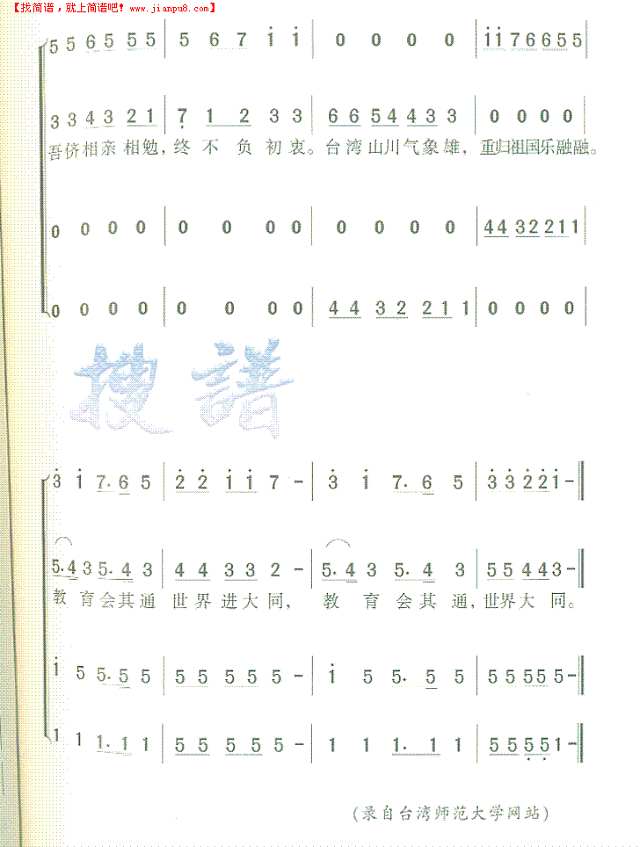 【找简谱，就上简谱吧！www.jianpu8.com】
5 5 6 5 5 5 | 5 6 7 i i | 0 0 0 0 | i i 7 6 6 5 5
3 3 4 3 2 1 | 7 1 2 3 3 | 6 6 5 4 4 3 3 | 0 0 0 0
吾侪相亲相勉，终不负初衷。台湾山川气象雄，重归祖国乐融融。
0 0 0 0 | 0 0 0 0 | 0 0 0 0 | 4 4 3 2 2 1 1
0 0 0 0 | 0 0 0 0 | 4 4 3 2 2 1 1 | 0 0 0 0
搜谱
3 i 7. 6 5 | 2 2 i i 7 - | 3 i 7. 6 5 | 3 3 2 2 i -
5. 4 3 5. 4 3 | 4 4 3 3 2 - | 5. 4 3 5. 4 3 | 5 5 4 4 3 -
教育会其通世界进大同，教育会其通，世界大同。
i 5 5. 5 5 | 5 5 5 5 5 - | i 5 5. 5 5 | 5 5 5 5 5 -
1 1 1. 1 1 | 5 5 5 5 5 - | 1 1 1. 1 1 | 5 5 5 5 1 -
(录自台湾师范大学网站)